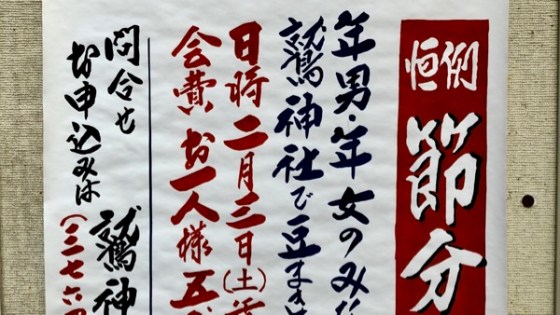 恒例 節分
年男・年女のみな
鷲神社で豆まき
日時 二月三日(土)
会費 お一人様 五
問合せ
お申込みは
鷲神
(三七六